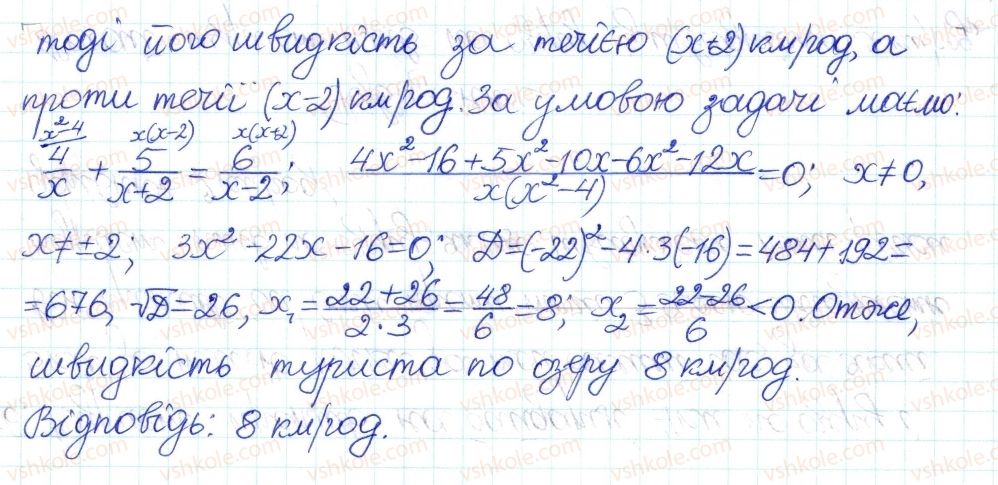 тоді його швидкість за течією (x+2) км/год, а
проти течії (x-2) км/год. За умовою задачі маємо:
x²-4 x(x-2) x(x+2)
4/x + 5/(x+2) = 6/(x-2); (4x²-16+5x²-10x-6x²-12x)/(x(x²-4)) = 0; x≠0,
x≠±2; 3x²-22x-16=0; D=(-22)²-4·3(-16)=484+192=
=676, √D=26, x₁=(22+26)/(2·3)=48/6=8; x₂=(22-26)/6<0. Отже,
швидкість туриста по озеру 8 км/год.
Відповідь: 8 км/год.